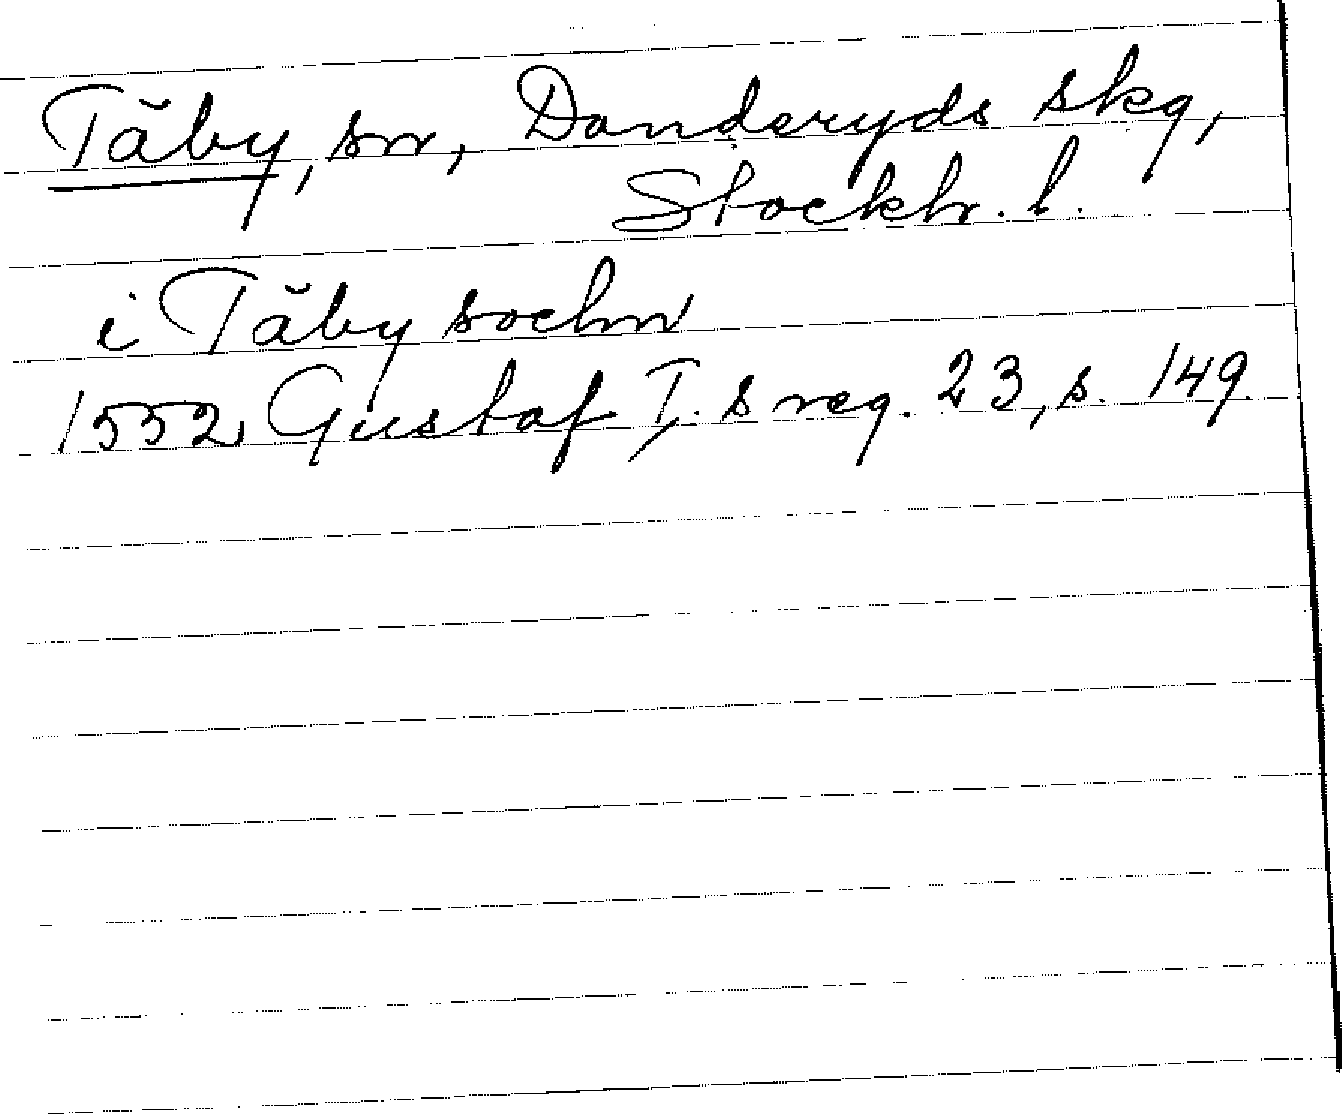 Täby, sn, Danderyds skg,
Stockh. l.
i Täby sochn
1552 Gustaf I. s reg. 23, s. 149.